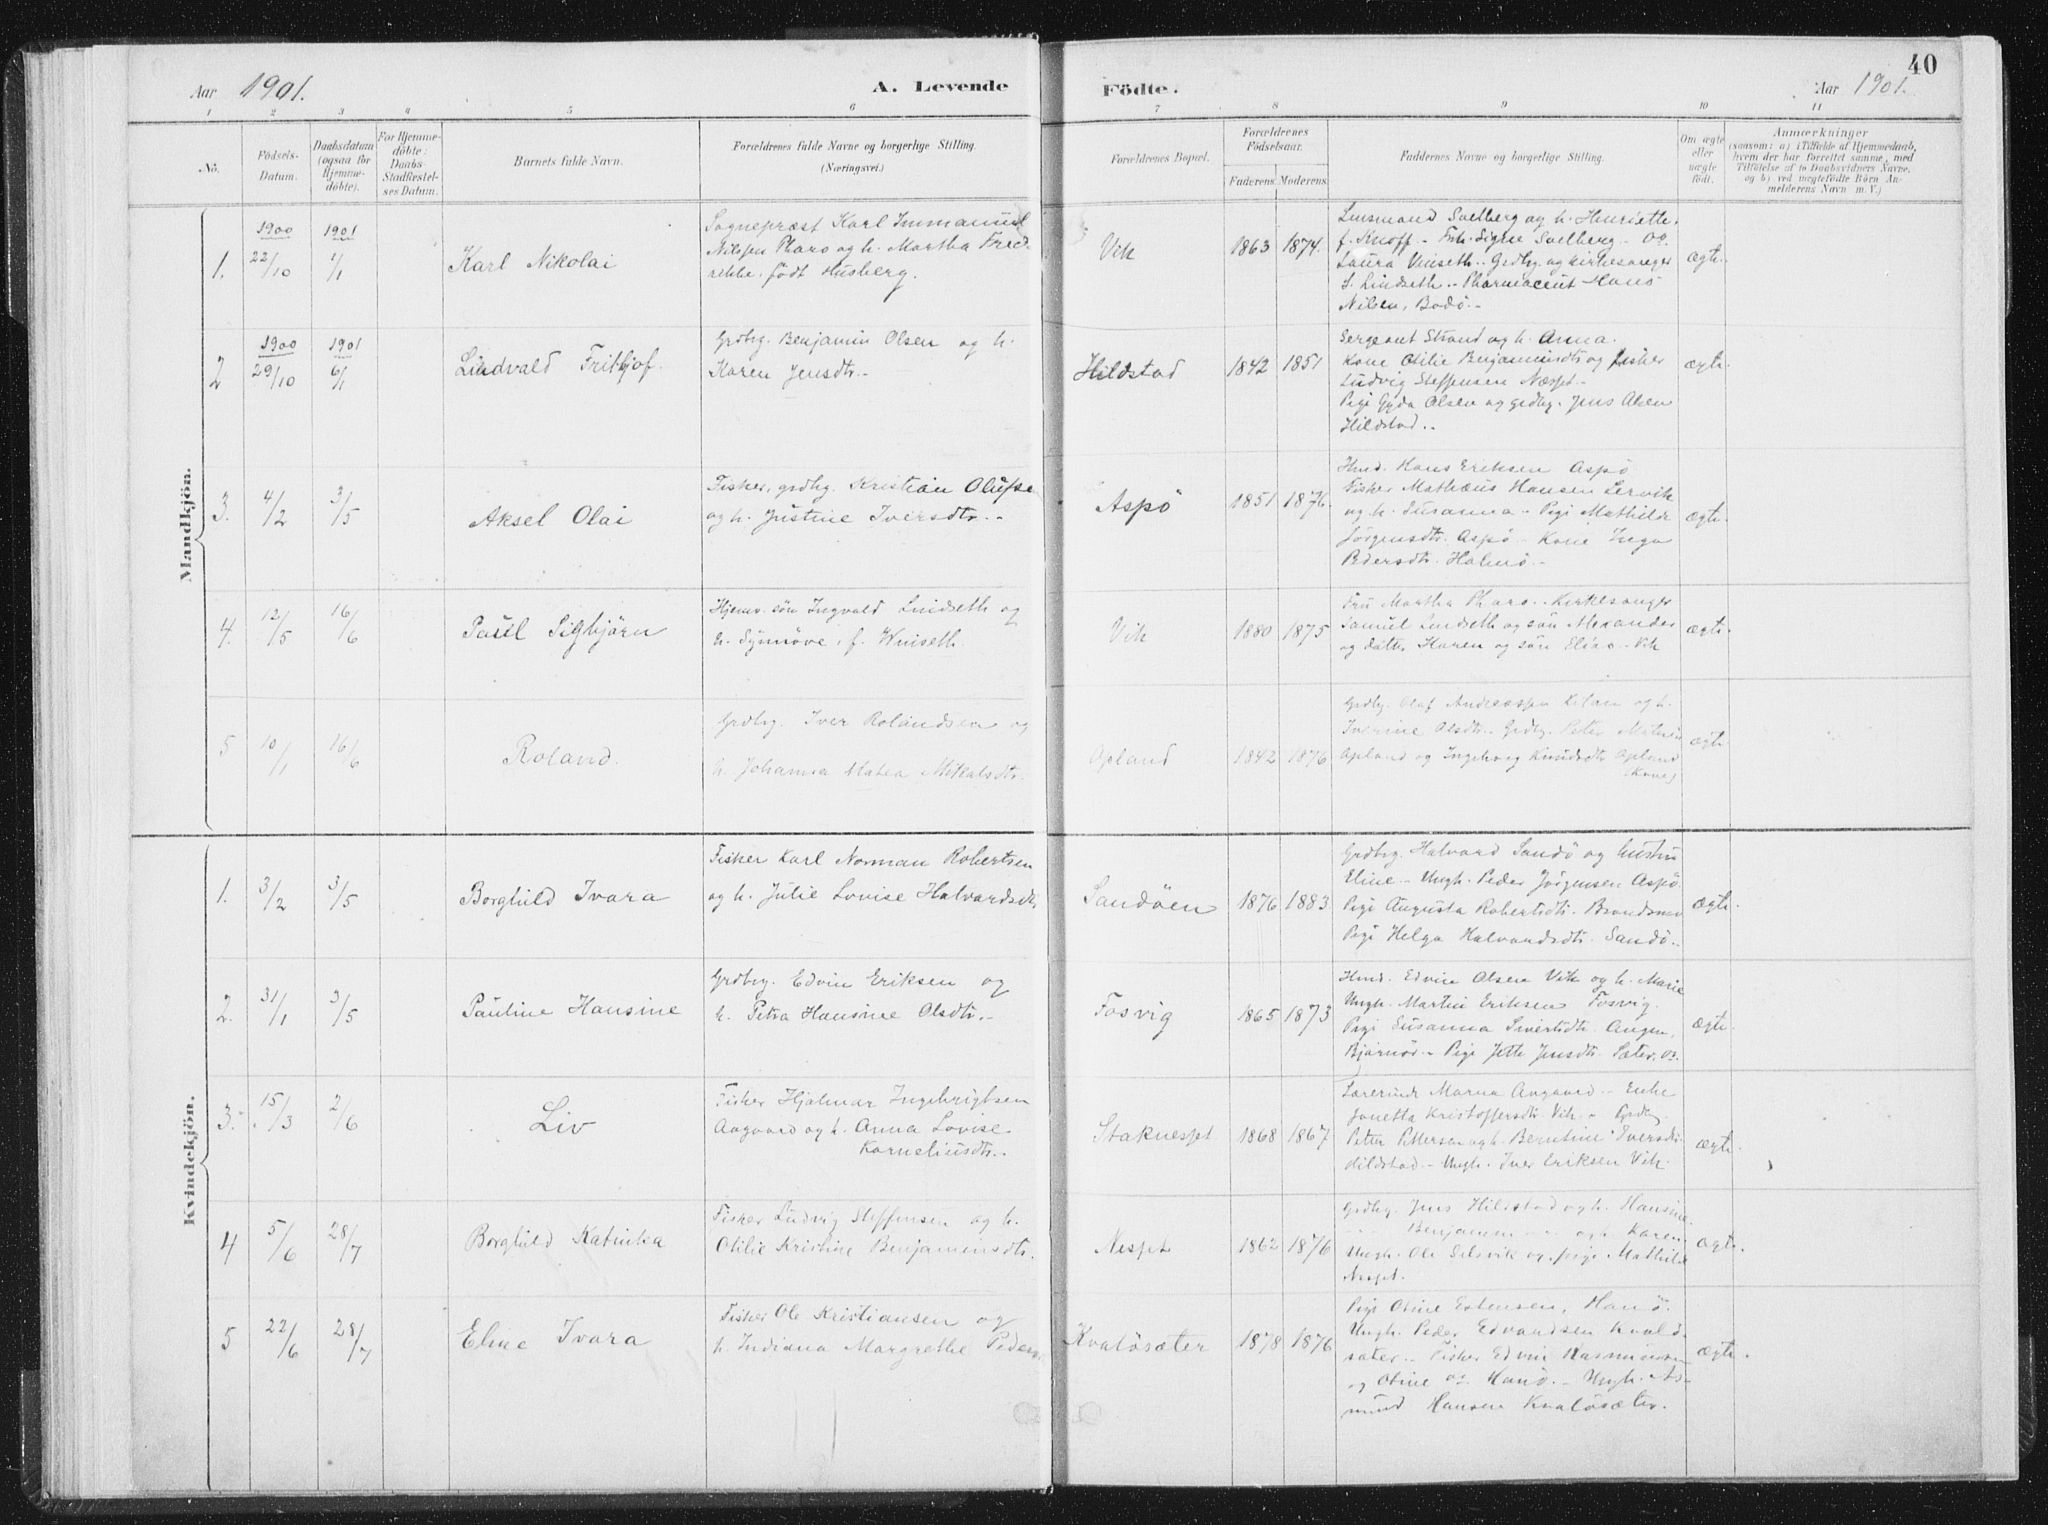 40
Aar 1901.
A. Levende
Födte.
Aar 1901.
1 2 3 4 5 6 7 8 9 10 11
No.
Födsels-
Datum.
Daabsdatum
(ogsaa for
Hjemme-
döbte).
For Hjemme-
döbte:
Daabs-
Stadfæstel-
ses Datum.
Barnets fulde Navn.
Forældrenes fulde Navne og borgerlige Stilling.
(Næringsvei.)
Forældrenes Bopæl.
Forældrenes
Födselsaar.
Faderens. Moderens.
Faddernes Navne og borgerlige Stilling.
Om ægte
eller
uægte
födt.
Anmærkninger
(saasom: a) i Tilfælde af Hjemmedaab,
hvem der har forrettet samme, med
Tilföielse af to Daabsvidners Navne,
og b) ved uægtefödte Börn An-
melderens Navn m. V.)
Mandkjön.
1.
1900
22/10
1901
1/1
Karl Nikolai
Sognepræst Karl Immanuel
Nilssen Pharo og h. Martha Fred-
rikke født Husberg.
Vik
1863 1874.
Lensmand Solberg og h. Henriette
f. Knoff - Frk. Signe Solberg - og
Laura Winseth - Grdbr. og kirkesanger
S. Lindseth - Pharmaceut Hans
Nilsen, Bodö.
ægte.
2
1900
29/10
1901
6/1
Lindvald Frithjof.
Grdbrg. Benjamin Olsen og h.
Karen Jensdtr.
Hildstad
1842 1851
Sergeant Strand og h. Anna.
Kone Otilie Benjaminsdtr og fisker
Ludvig Steffensen Næspt.
Pige Gyda Olsen og grdbrg. Jens Olsen
Hildstad.
ægte.
3.
4/2
3/5
Aksel Olai
Fisker, grdbrg. Kristian Olufse
og h. Justine Iversdtr.
Aspö
1851 1876.
Hmd. Hans Eriksen Aspö
Fisker Mathæus Hansen Lervik
og h. Susanna - Pige Mathilde
Jörgensdtr. Aspö - Kone Inga
Pedersdtr. Halmö.
ægte.
4.
12/5
16/6
Paul Sigbjörn
Hjemv. sön Ingvald Lindseth og
h. Synnöve, f. Winseth.
Vik
1880 1875
Fru Martha Pharo - Kirkesanger
Samuel Lindseth og sön Alexander
og datter Karen og sön Elias - Vik
ægte.
5
10/1
16/6
Roland.
Grdbrg. Iver Rolandsen og
h. Johanna Matea Mikalsdtr.
Opland
1842 1876
Grdbrg. Olaf Andreassen Kilan og h.
Iverine Olsdtr. - Grdbrg. Peter
Opland og Ingeborg Knudsdtr Opland
(Kone)
ægte
Kvindekjön.
1.
3/2
3/5
Borghild Ivara
Fisker Karl Norman Robertsen
og h. Julie Lovise Halvardsdtr.
Sandöen
1876 1883
Grdbrg. Halvard Sandö og hustru
Eline - Ungk. Peder Jörgensen Aspö.
Pige Augusta Robertsdtr.
Pige Helga Halvardsdtr. Sandö.
ægte.
2.
31/1
3/5
Pauline Hansine
Grdbrg. Edvin Eriksen og
h. Petra Hansine Olsdtr.
Fosvig
1865 1873
Hmd. Edvin Olsen Vik og h. Marie
Ungk. Martin Eriksen Fosvig.
Pige Susanna Sivertsdtr. Angen,
Bjørnör - Pige Jette Jensdtr. Sæter, Oz.
ægte.
3.
15/3
2/6
Liv
Fisker Hjalmar Ingebrigtsen
Aagaard og h. Anna Lovise
Korneliusdtr.
Staknespt
1868 1867
Lærerinde Marna Aagaard - Enke
Janetta Kristoffersdtr Vik - Grdbrg.
Peter Pettersen og h. Berntine Iversdtr.
Hildstad - Ungk. Iver Eriksen Vik.
ægte.
4
5/6
28/7
Borghild Katinka
Fisker Ludvig Steffensen og h.
Otilie Kristine Benjaminsdtr.
Nespt
1862 1876
Grdbrg. Jens Hildstad og h. Hansine.
Benjamin og h. Karen
Ungk. Ole Selsvik og pige Mathilde
Nespt.
ægte.
5
22/6
28/7
Eline Ivara
Fisker Ole Kristiansen og
h. Indiana Margrethe Peders
Kvalösæter
1878 1876
Pige Oline Estensen, Hanö.
Ungk. Peder Edvardsen Kvalö-
sæter - Fisker Edvin Rasmussen
og Oline Hanö. - Ungk. As-
mund Hansen Kvalösæter.
ægte.